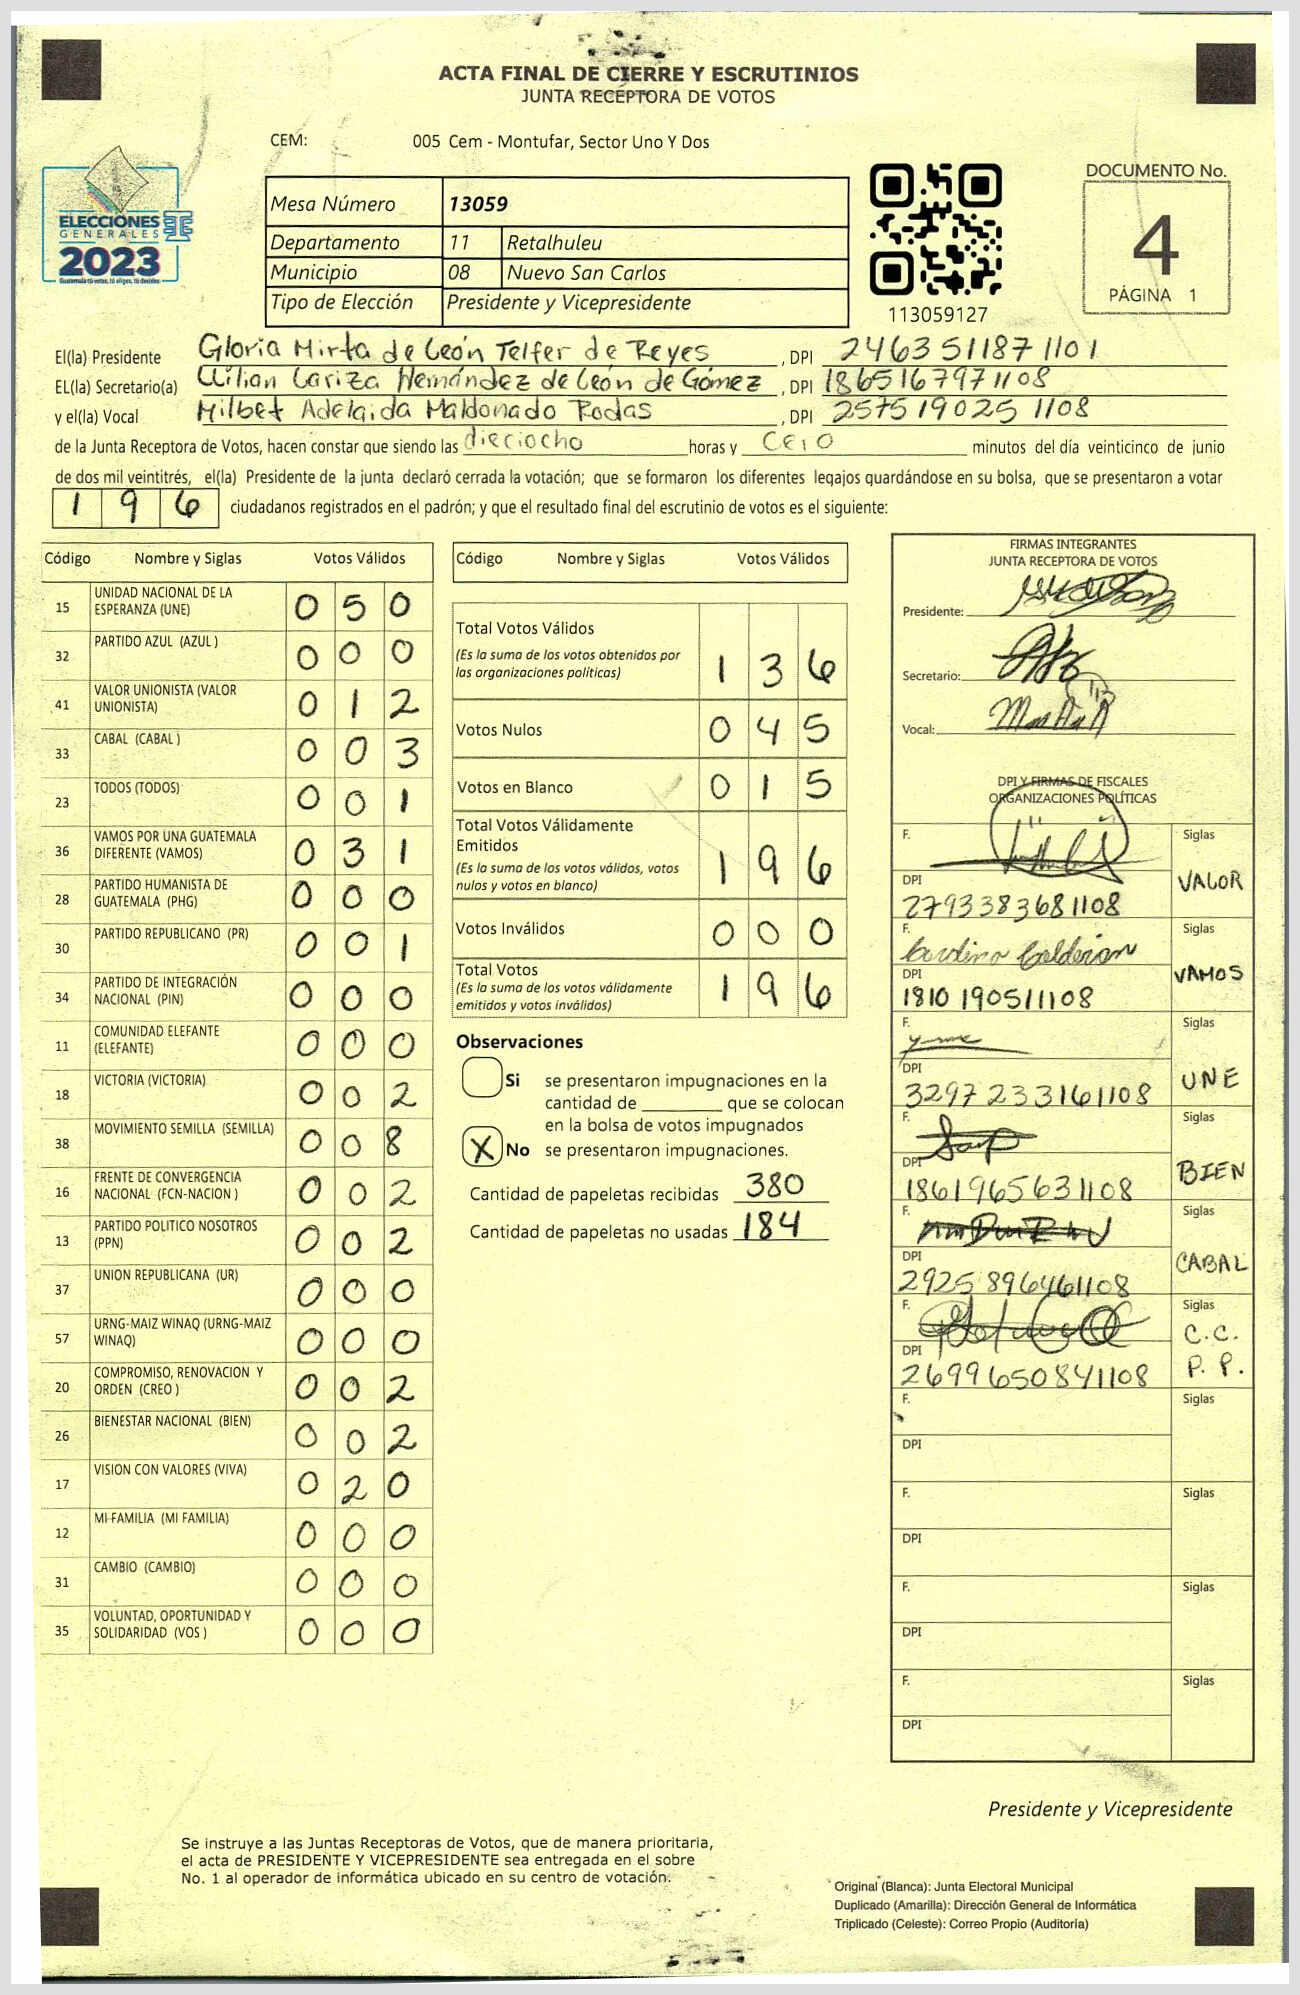 ACTA FINAL DE CIERRE Y ESCRUTINIOS
JUNTA RECEPTORA DE VOTOS
CEM: 005 Cem - Montufar, Sector Uno Y Dos
ELECCIONES
GENERALES
2023
Guatemala tú votas, tú eliges, tú decides
Mesa Número 13059
Departamento 11 Retalhuleu
Municipio 08 Nuevo San Carlos
Tipo de Elección Presidente y Vicepresidente
113059127
DOCUMENTO No.
4
PÁGINA 1
El(la) Presidente Gloria Mirta de León Telfer de Reyes, DPI 2463511871101
EL(la) Secretario(a) Lilian Lariza Hernández de León de Gómez, DPI 1865167971108
y el(la) Vocal Milbet Adelaida Maldonado Rodas, DPI 2575190251108
de la Junta Receptora de Votos, hacen constar que siendo las dieciocho horas y cero minutos del día veinticinco de junio
de dos mil veintitrés, el(la) Presidente de la junta declaró cerrada la votación; que se formaron los diferentes legajos quardándose en su bolsa, que se presentaron a votar
196 ciudadanos registrados en el padrón; y que el resultado final del escrutinio de votos es el siguiente:
Código Nombre y Siglas Votos Válidos
15 UNIDAD NACIONAL DE LA ESPERANZA (UNE) 050
32 PARTIDO AZUL (AZUL ) 000
41 VALOR UNIONISTA (VALOR UNIONISTA) 012
33 CABAL (CABAL ) 003
23 TODOS (TODOS) 001
36 VAMOS POR UNA GUATEMALA DIFERENTE (VAMOS) 031
28 PARTIDO HUMANISTA DE GUATEMALA (PHG) 000
30 PARTIDO REPUBLICANO (PR) 001
34 PARTIDO DE INTEGRACIÓN NACIONAL (PIN) 000
11 COMUNIDAD ELEFANTE (ELEFANTE) 000
18 VICTORIA (VICTORIA) 002
38 MOVIMIENTO SEMILLA (SEMILLA) 008
16 FRENTE DE CONVERGENCIA NACIONAL (FCN-NACION ) 002
13 PARTIDO POLITICO NOSOTROS (PPN) 002
37 UNION REPUBLICANA (UR) 000
57 URNG-MAIZ WINAQ (URNG-MAIZ WINAQ) 000
20 COMPROMISO, RENOVACION Y ORDEN (CREO ) 002
26 BIENESTAR NACIONAL (BIEN) 002
17 VISION CON VALORES (VIVA) 020
12 MI FAMILIA (MI FAMILIA) 000
31 CAMBIO (CAMBIO) 000
35 VOLUNTAD, OPORTUNIDAD Y SOLIDARIDAD (VOS ) 000
Código Nombre y Siglas Votos Válidos
Total Votos Válidos
(Es la suma de los votos obtenidos por
las organizaciones políticas) 136
Votos Nulos 045
Votos en Blanco 015
Total Votos Válidamente
Emitidos
(Es la suma de los votos válidos, votos
nulos y votos en blanco) 196
Votos Inválidos 000
Total Votos
(Es la suma de los votos válidamente
emitidos y votos inválidos) 196
Observaciones
Si se presentaron impugnaciones en la
cantidad de ________ que se colocan
en la bolsa de votos impugnados
X No se presentaron impugnaciones.
Cantidad de papeletas recibidas 380
Cantidad de papeletas no usadas 184
FIRMAS INTEGRANTES
JUNTA RECEPTORA DE VOTOS
Presidente:
Secretario:
Vocal:
DPI Y FIRMAS DE FISCALES
ORGANIZACIONES POLÍTICAS
F. Siglas
DPI VALOR
2793383681108
F. Carolina Calderón Siglas
DPI VAMOS
1810190511108
F. Siglas
DPI UNE
3297233161108
F. Siglas
DPI BIEN
1861965631108
F. Siglas
DPI CABAL
2925896461108
F. Siglas
DPI C.C.
2699650841108 P. P.
F. Siglas
DPI
F. Siglas
DPI
F. Siglas
DPI
F. Siglas
DPI
Presidente y Vicepresidente
Se instruye a las Juntas Receptoras de Votos, que de manera prioritaria,
el acta de PRESIDENTE Y VICEPRESIDENTE sea entregada en el sobre
No. 1 al operador de informática ubicado en su centro de votación.
Original (Blanca): Junta Electoral Municipal
Duplicado (Amarilla): Dirección General de Informática
Triplicado (Celeste): Correo Propio (Auditoría)